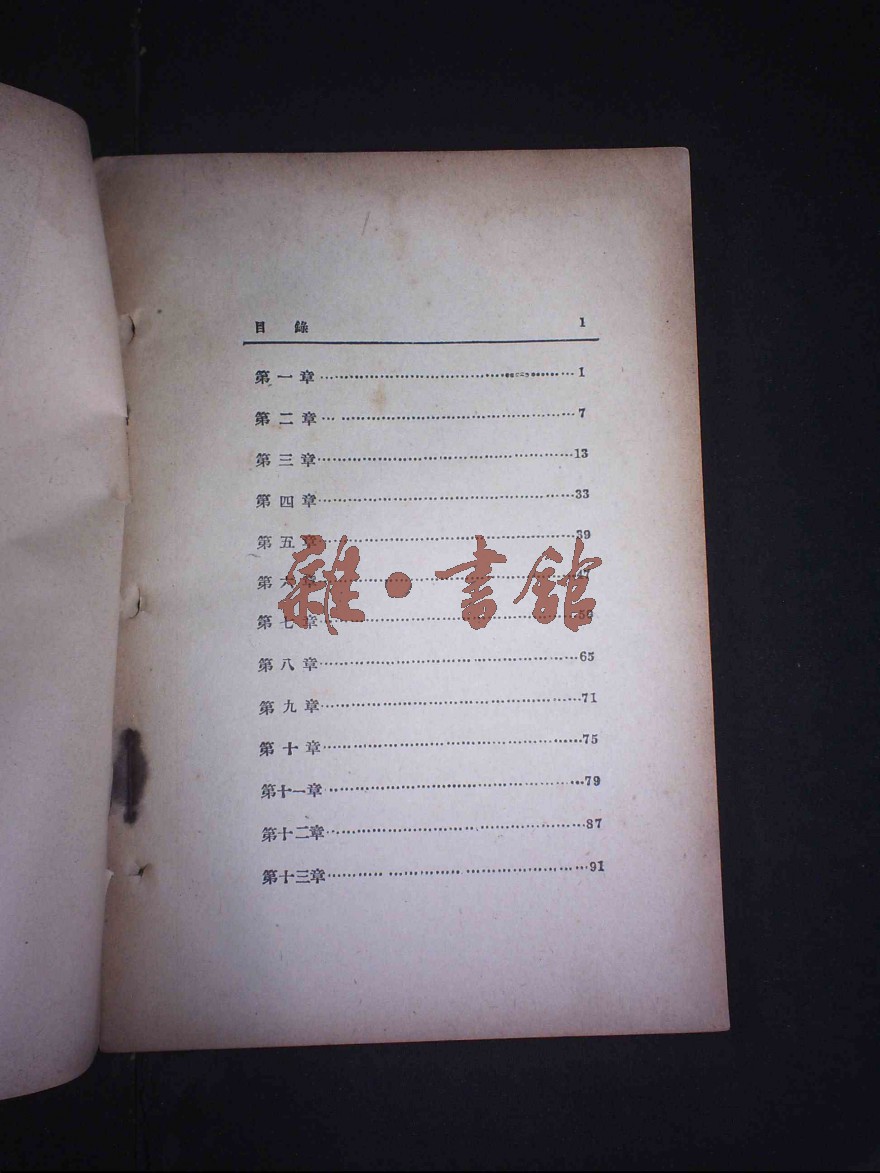 目 錄 1
第一章…………………………………………1
第二章…………………………………………7
第三章…………………………………………13
第四章…………………………………………33
第五章…………………………………………39
第六章…………………………………………
第七章…………………………………………59
第八章…………………………………………65
第九章…………………………………………71
第十章…………………………………………75
第十一章………………………………………79
第十二章………………………………………87
第十三章………………………………………91
雜·書館